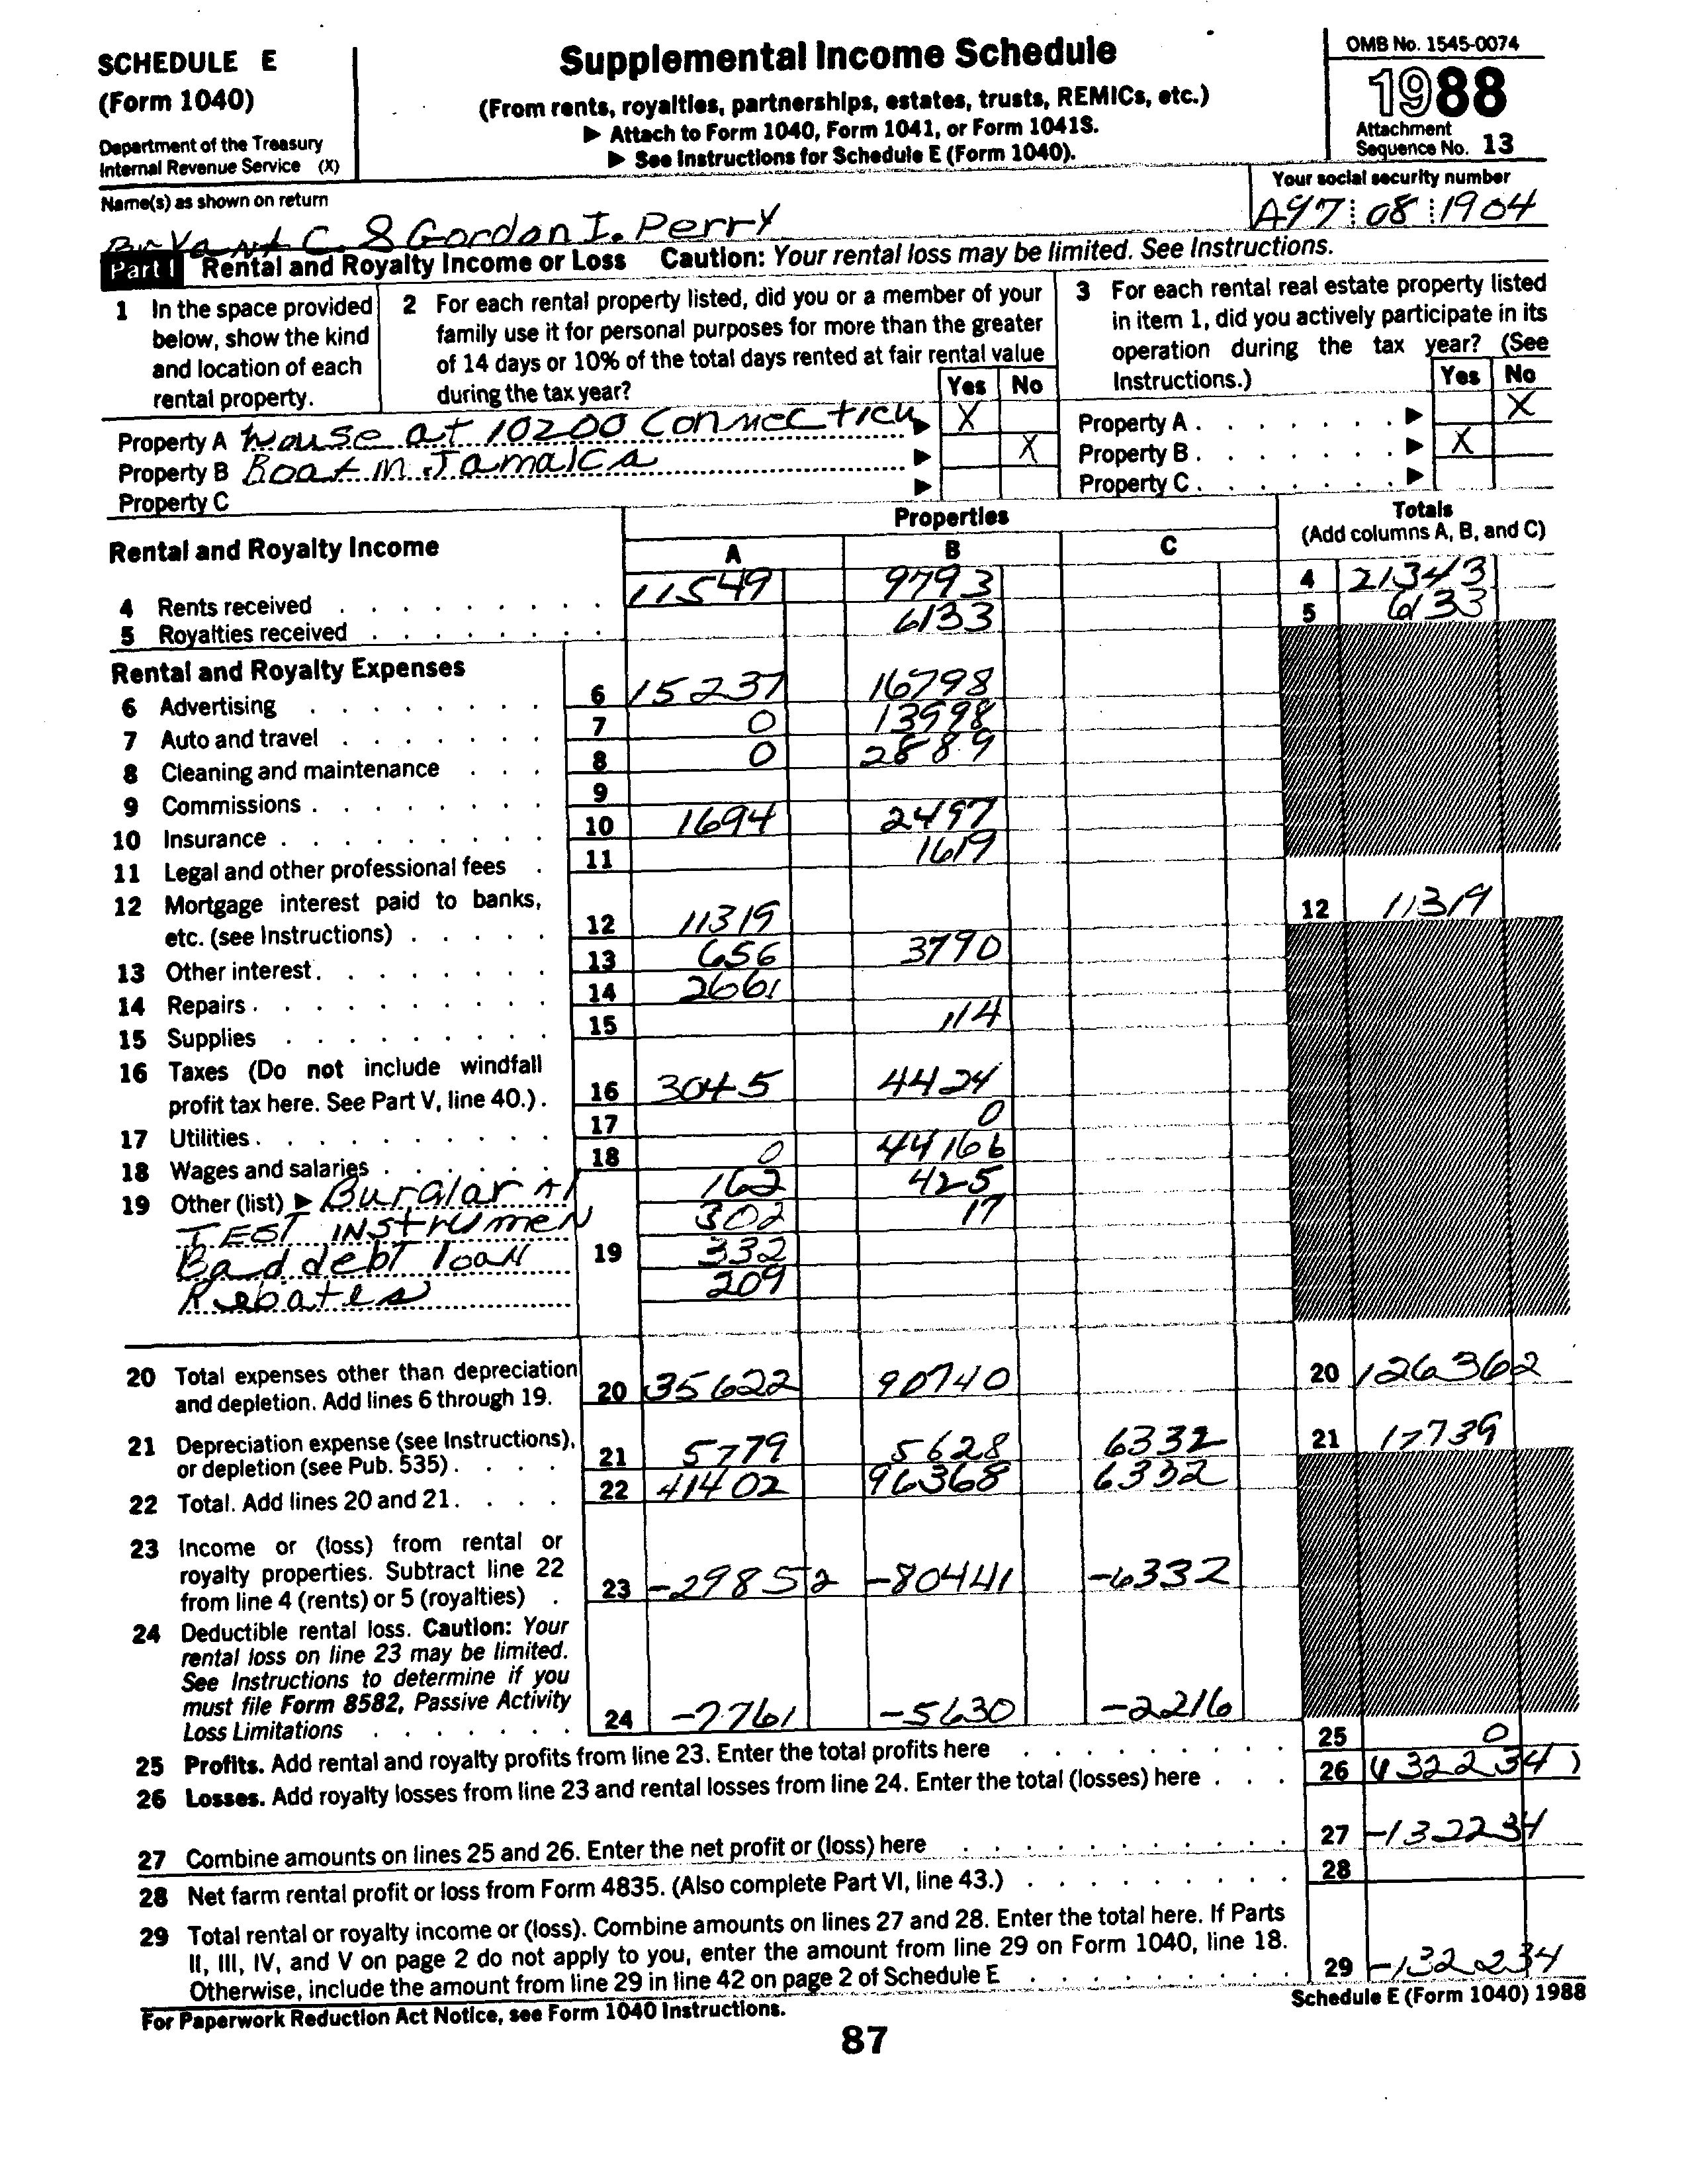 SCHEDULE E
(Form 1040)
Department of the Treasury
Internal Revenue Service (X)
Supplemental Income Schedule
(From rents, royalties, partnerships, estates, trusts, REMICs, etc.)
▶ Attach to Form 1040, Form 1041, or Form 1041S.
▶ See Instructions for Schedule E (Form 1040).
OMB No. 1545-0074
1988
Attachment
Sequence No. 13
Name(s) as shown on return
Bryant C. & Gordon I. Perry
Your social security number
A97 08 1904
Part I Rental and Royalty Income or Loss Caution: Your rental loss may be limited. See Instructions.
1 In the space provided
below, show the kind
and location of each
rental property.
2 For each rental property listed, did you or a member of your
family use it for personal purposes for more than the greater
of 14 days or 10% of the total days rented at fair rental value
during the tax year? Yes No
3 For each rental real estate property listed
in item 1, did you actively participate in its
operation during the tax year? (See
Instructions.) Yes No
Property A House at 10200 Connecticu ▶ X
Property B Boat in Jamaica ▶ X
Property C ▶
Property A . . . . . . . ▶ X
Property B . . . . . . . ▶ X
Property C . . . . . . . ▶
Rental and Royalty Income
Properties
A B C
Totals
(Add columns A, B, and C)
4 Rents received 11549 9793 4 21343
5 Royalties received 6133 5 6133
Rental and Royalty Expenses
6 Advertising 6 15237 16798
7 Auto and travel 7 0 13998
8 Cleaning and maintenance 8 0 2889
9 Commissions 9
10 Insurance 10 1694 2497
11 Legal and other professional fees 11 1619
12 Mortgage interest paid to banks,
etc. (see Instructions) 12 11319 12 11319
13 Other interest 13 656 3790
14 Repairs 14 2661
15 Supplies 15 114
16 Taxes (Do not include windfall
profit tax here. See Part V, line 40.) 16 3045 4424
17 Utilities 17 0
18 Wages and salaries 18 0 44166
19 Other (list) ▶ Burglar Al 162 425
TEST INSTrUmeN 302 17
Bad debt loan 19 332
Rebates 209
20 Total expenses other than depreciation
and depletion. Add lines 6 through 19. 20 35622 90740 20 126362
21 Depreciation expense (see Instructions),
or depletion (see Pub. 535) 21 5779 5628 6332 21 17739
22 Total. Add lines 20 and 21. 22 41402 96368 6332
23 Income or (loss) from rental or
royalty properties. Subtract line 22
from line 4 (rents) or 5 (royalties) 23 -29852 -80441 -6332
24 Deductible rental loss. Caution: Your
rental loss on line 23 may be limited.
See Instructions to determine if you
must file Form 8582, Passive Activity
Loss Limitations 24 -7761 -5630 -2216
25 Profits. Add rental and royalty profits from line 23. Enter the total profits here 25 0
26 Losses. Add royalty losses from line 23 and rental losses from line 24. Enter the total (losses) here 26 (132234)
27 Combine amounts on lines 25 and 26. Enter the net profit or (loss) here 27 -132234
28 Net farm rental profit or loss from Form 4835. (Also complete Part VI, line 43.) 28
29 Total rental or royalty income or (loss). Combine amounts on lines 27 and 28. Enter the total here. If Parts
II, III, IV, and V on page 2 do not apply to you, enter the amount from line 29 on Form 1040, line 18.
Otherwise, include the amount from line 29 in line 42 on page 2 of Schedule E 29 -132234
For Paperwork Reduction Act Notice, see Form 1040 Instructions.
Schedule E (Form 1040) 1988
87